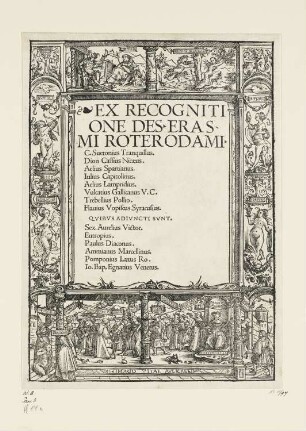 EX RECOGNITI
ONE DES·ERAS·
MI ROTERODAMI·
C. Suetonius Tranquillus.
Dion Cassius Nicæus.
Aelius Spartianus.
Iulius Capitolinus.
Aelius Lampridius.
Vulcatius Gallicanus V.C.
Trebellius Pollio.
Flauius Vopiscus Syracusius.
QVIBVS ADIVNCTI SVNT.
Sex. Aurelius Victor.
Eutropius.
Paulus Diaconus.
Ammianus Marcellinus.
Pomponius Lætus Ro.
Io. Bap. Egnatius Venetus.